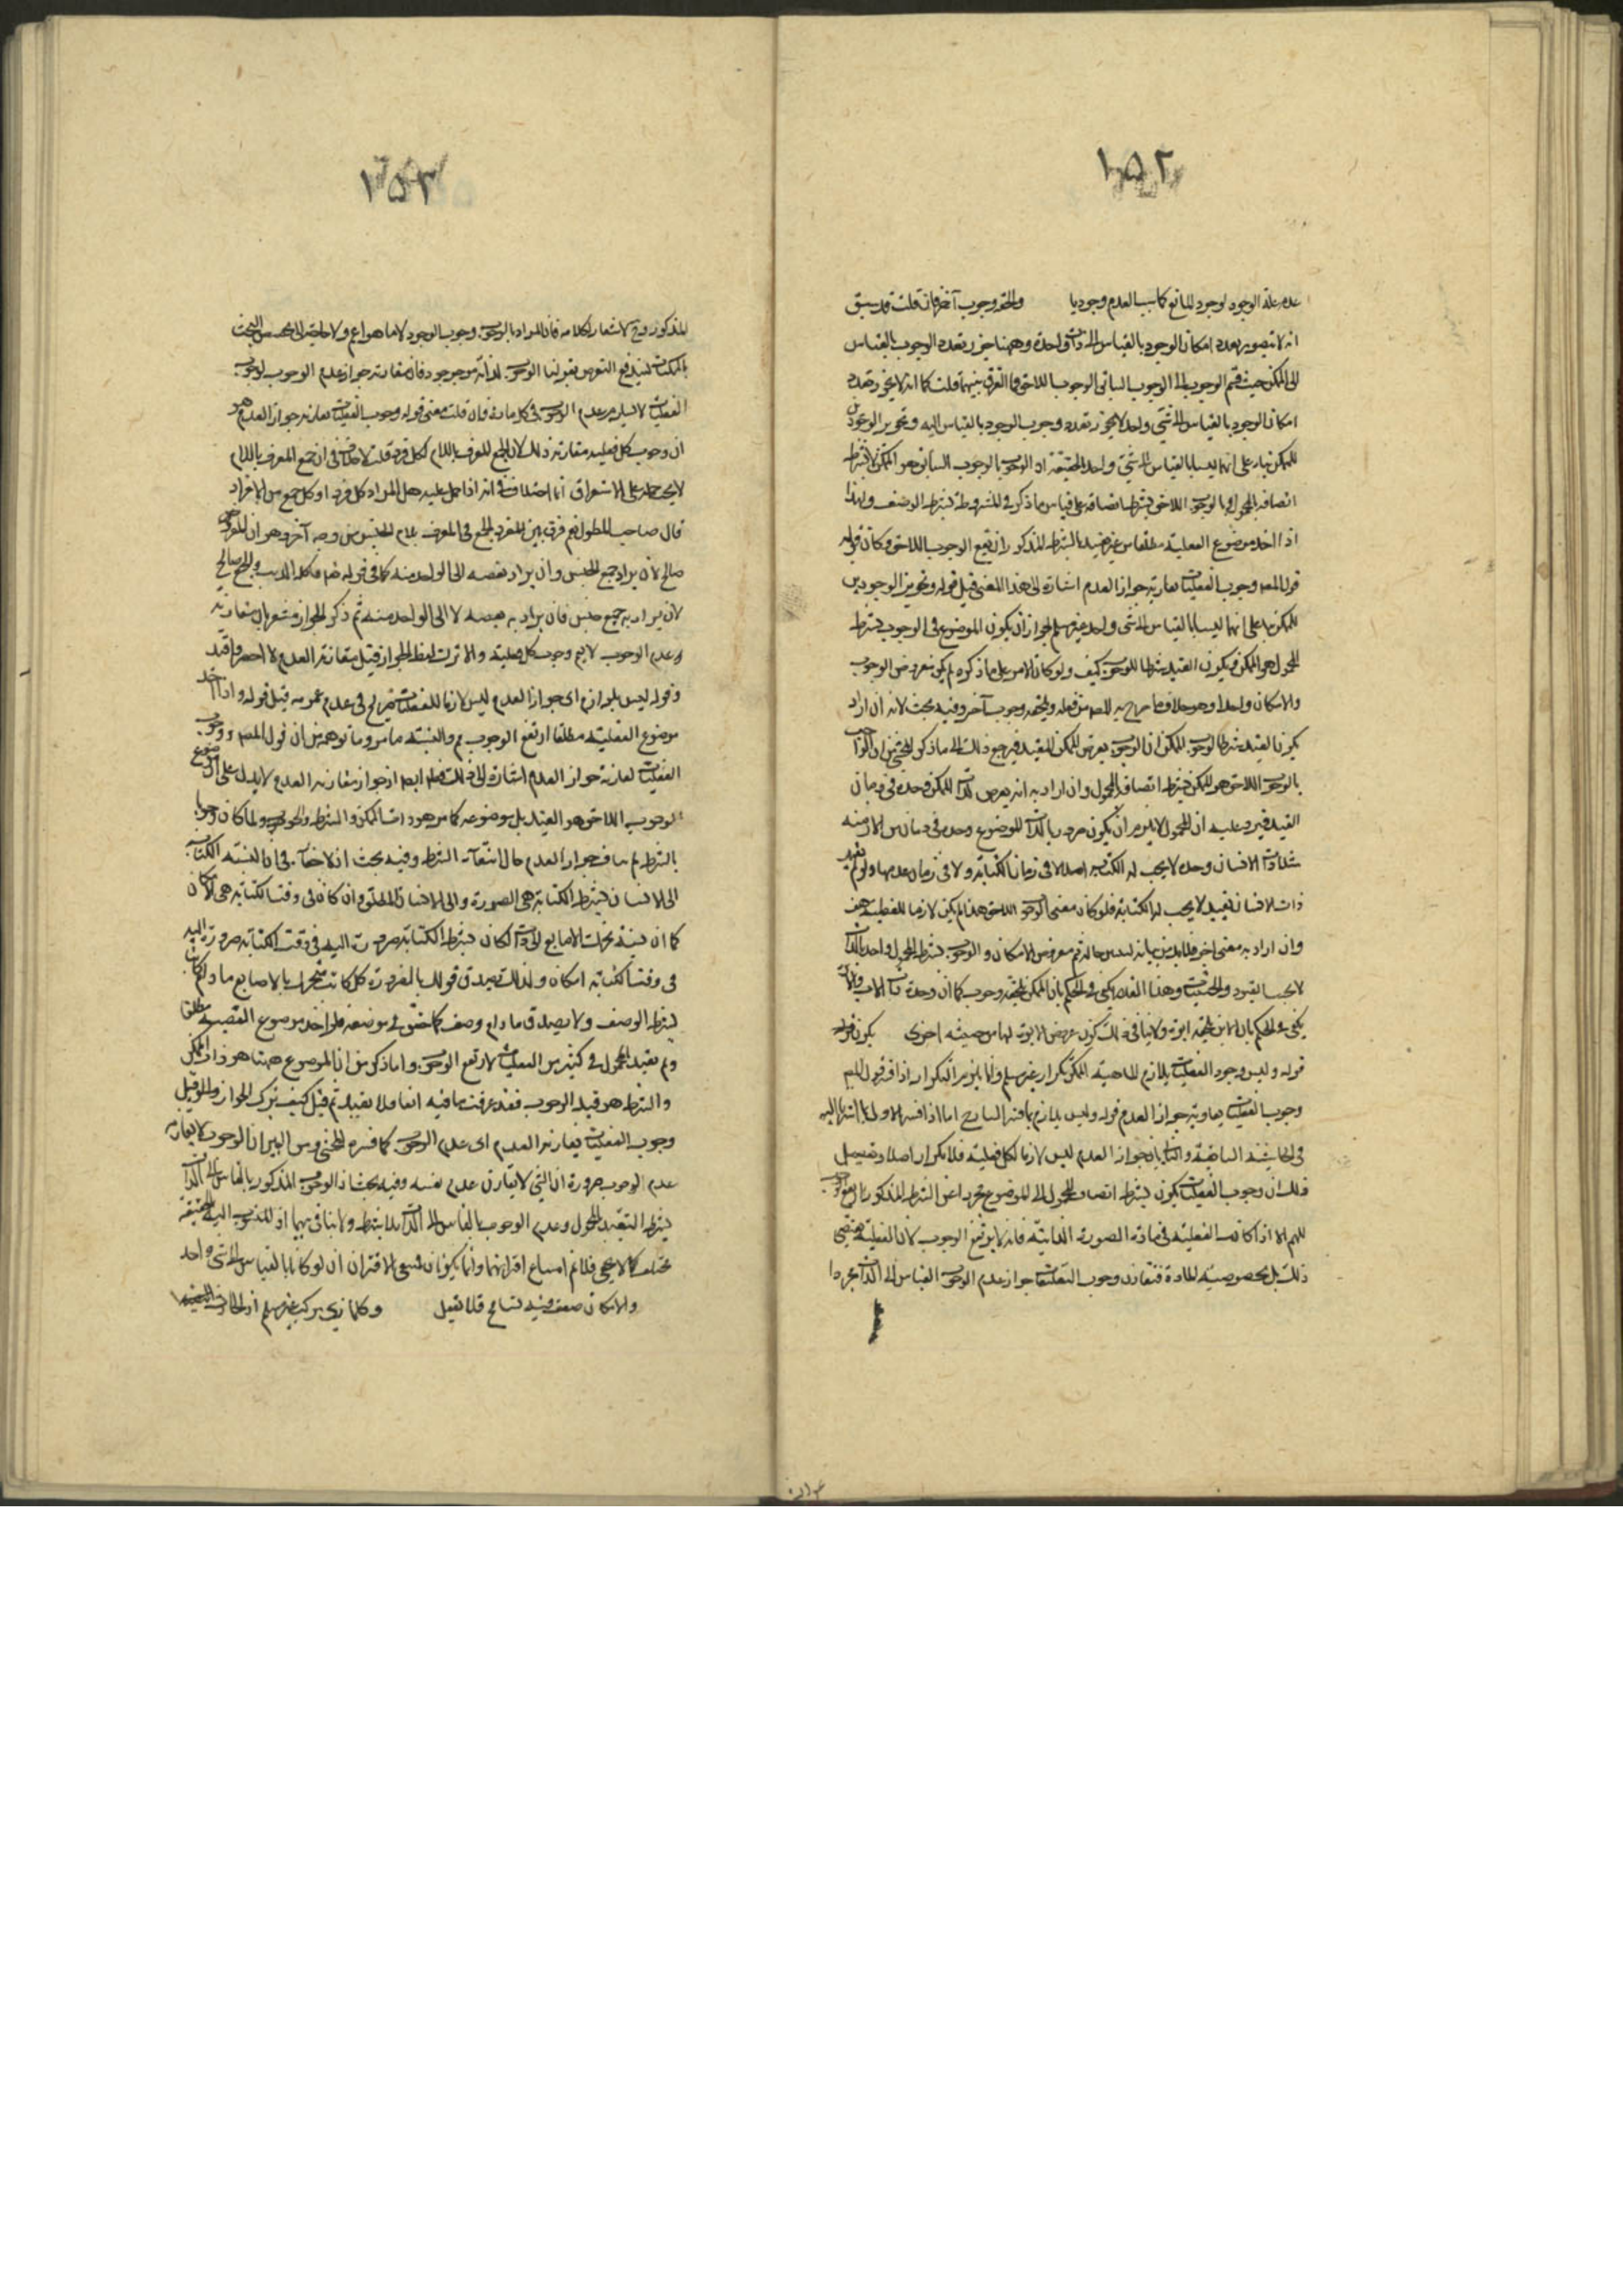 ١٥٢
عدم علة الوجود لوجود المانع كما يسبب العدم وجوديا ولحقه وجوب آخر فان قلت قد سبق
انه لا يتصور تعدد امكان الوجود بالقياس الى ذات واحدة وههنا جوز تعدد الوجوب بالقياس
الى الممكن حيث قسم الوجوب الى الوجوب السابق الوجوب اللاحق فما الفرق بينهما قلت كما انه لا يجوز تعدد
امكان الوجود بالقياس الى شئ واحد لا يجوز تعدد وجوب الوجود بالقياس اليه وتجويز الوجوبين
للممكن بناء على انهما ليسا بالقياس الى شئ واحد بالحقيقة اذ الوجوب السابق هو الممكن لا بشرط
اتصافه بالمحمول الوجوب اللاحق بشرط اتصافه على قياس ما ذكر في المشروطة بشرط الوصف ولهذا
اذا اخذ موضوع الفعلية مطلقا من غير تقييد بالشرط المذكور ارتفع الوجوب اللاحق وكان قوله
قول المصه وجوب الفعليات يقارنه جواز العدم اشارة الى هذا المعنى قيل قوله وتجويز الوجوبين
للممكن بناء على انهما ليسا بالقياس الى شئ واحد غير مسلم لجواز ان يكون الموضوع في الوجوب بشرط
المحمول هو الممكن ويكون القيد شرطا للوجوب كيف ولو كان الامر على ما ذكره لم يكن معروض الوجوب
والامكان واحدا وهو خلاف ما صرح به المصه من قوله ويلحقه وجوب آخر وفيه بحث لانه ان اراد
بكون القيد شرطا لوجوب الممكن ان الوجوب يعرض للممكن المقيد فيرجع ذلك الى ما ذكر المحشي من ان الواجب
بالوجوب اللاحق هو الممكن بشرط اتصافه بالمحمول وان اراد به انه يعرض لذات الممكن وحده في زمان
القيد فيرد عليه ان المحمول لا يلزم ان يكون ضروريا لذات الموضوع وحده في زمان من الازمنة
مثلا ذات الانسان وحده لا يجب له الكتابة اصلا لا في زمان الكتابة ولا في زمان عدمها ولو لم تقيد
ذات الانسان بقيد لا يجب له الكتابة فلو كان معنى الوجوب اللاحق هذا لم يكن لازما للفعلية هف
وان اراد به معنى اخر فلا بد من بيانه معروض الامكان والوجوب بشرط المحمول واحد بالذات
لا بحسب القيود والحيثيات وهذا القدر يكفي في الحكم بان الممكن يلحقه وجوب كما ان وحدة ذات الاب والابن
يكفي في الحكم بان الابن يلحقه ابوة ولا ينافي ذلك كون عروض الابوة لها من حيثية اخرى بكون قوله
قوله وليس وجود الفعليات بلازم لماهية الممكن تكرار غير مسلم وانما يلزم التكرار اذا قول المصه
وجوب الفعليات يقارنه جواز العدم قوله وليس بلازم بما فسر الشارح اما اذا فسر الاول بما اشرنا اليه
في الحاشية السابقة والثاني بان جواز العدم ليس لازما لكل فعلية فلا تكرار اصلا وتفصيل
ذلك ان وجوب الفعليات يكون بشرط اتصاف المحمول الى الموضوع اعني الشرط المذكور ارتفع الوجوب
اللهم الا اذا كانت الفعلية في مادة الضرورة الذاتية فانه لا يرتفع الوجوب لا لان الفعلية يقتضي
ذلك بل بخصوصية المادة فتقارن وجوب الفعليات جواز عدم الوجوب القياس الى الذات مجردا
١٥٣
المذكور وح لا شعار لكلامه فان المراد بالوجوب وجوب الوجود لا ما هو اعم ولا حاجة الى تخصيص البحث
بالممكنات ليندفع النقض بقولنا الوجوب لذاته موجود فان مقارنة جواز عدم الوجوب لوجوب
الفعليات لا يستلزم عدم الوجوب في كل مادة فان قلت معنى قوله وجوب الفعليات يقارنه جواز العدم هو
ان وجوب كل فعلية مقارنة ذلك لان الجمع المعرف باللام لكل فرد قلت لا خفاء في ان جمع المعرف باللام
لا يجب حمله على الاستغراق انما اختلاف في انه اذا حمل عليه هل المراد كل فرد او كل جمع من الافراد
قال صاحب المطول نعم فرق بين المفرد والجمع في المعرف بلام الجنس من وجه آخر وهو ان المفرد
صالح لان يراد جميع الجنس وان يراد بعضه الى الواحد منه كما في قوله تعه فاكله الذئب والجمع صالح
لان يراد به جميع جنس فان يراد به بعضه لا الى الواحد منه ثم ذكر الجواز مشعر بان مقارنة
وعدم الوجوب لا يعم وجوب كل فعلية والا ترك لفظ الجواز قيل مقارنة العدم لا احضر وافيد
وقوله ليس بلوازم اى جواز العدم ليس لازما للفعليات تصريح في عدم عمومه قيل قوله واذا اخذ
موضوع الفعلية مطلقا ارتفع الوجوب والنسبة ما مر وما توهم من ان قول المصه ووجوب
الفعليات يقارنه جواز العدم اشارة الى ذلك ايضا اذ جواز مقارنة العدم لا يدل على ان موضوع
الوجوب اللاحق هو القيد بل موضوعه كما مر هو ذات الممكن والشرط ولما كان وجوبا
بالشرط لم يناف جواز العدم حال انتفاء الشرط وفيه بحث اذ لا خفاء في ان نسبة الكتابة
الى الانسان بشرط الكتابة هي الضرورة والى الانسان المطلق وان كان في وقت الكتابة هي الامكان
كما ان نسبة تحرك الاصابع الى ذات الكاتب بشرط الكتابة ضرورة اليه في وقت الكتابة ضرورة اليه
في وقت الكتابة امكان ولذلك يصدق قولك بالضرورة كل كاتب متحرك الاصابع ما دام كاتبا
بشرط الوصف ولا يصدق ما دام وصف كما حقق في موضعه فلو اخذ موضوع القضية مطلقا
ولم تقيد بالمحمول في كثير من الفعليات لارتفع الوجوب واما ذكر من ان الموضوع ههنا هو ذات الممكن
والشرط هو قيد الوجوب فقد عرفت ما فيه آنفا فلا نعيده ثم قيل كيف يترك الجواز
وجوب الفعليات يقارنه العدم اى عدم الوجوب كما فسره المحشي ومن البين ان الوجوب لا يقارنه
عدم الوجوب ضرورة ان الشئ لا يقارن عدم نفسه وفيه بحث اذ الوجوب المذكور بالقياس الى الذات
بشرط التقييد بالمحمول وعدم الوجوب بالقياس الى الذات بلا شرط ولا تنافي بينهما اذ المنسوب اليه بالحقيقة
مختلف كما لا يخفى فلا نم امتناع اقترانهما وانما يكونان متنعى الاقتران ان لو كانا بالقياس الى شئ واحد
والامكان صفة وفيه تسامح فلا تغفل وكل ما تركب غير مسلم